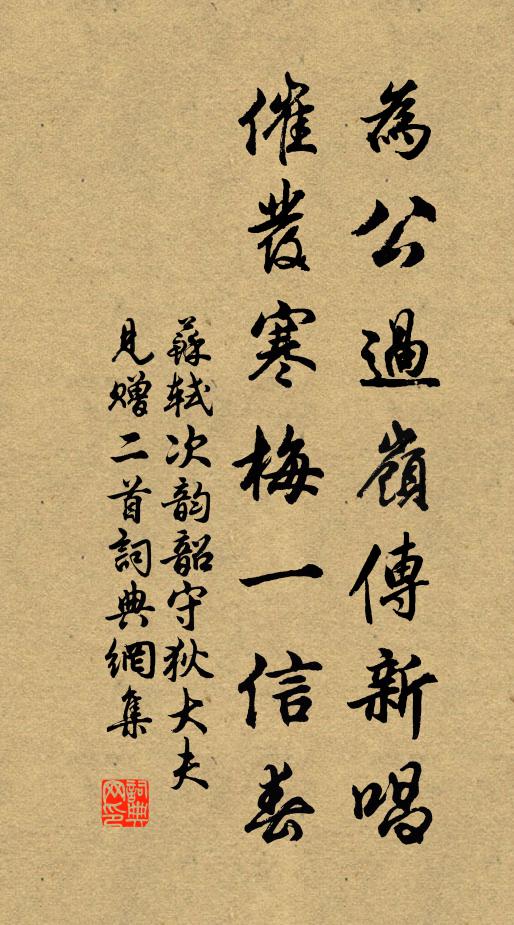 為公過嶺傳新唱
催發寒梅一信春
蘇軾次韵韶守狄大夫
見贈二首詞典網集
詞典
网印